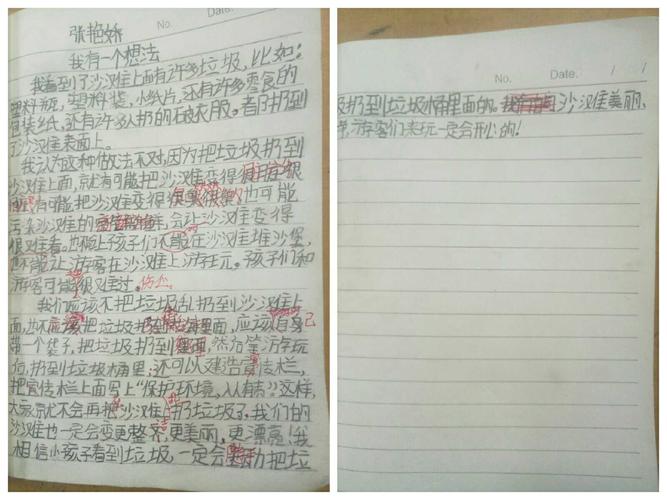 张艳娇
No.
Date.
我有一个想法
我看到了沙汉隹上面有许多垃圾，比如：
塑料瓶，塑料袋，小纸片，还有许多零食的
包装纸，还有许多人扔的破衣服。都扔到
了沙汉隹表面上。
我认为这种做法不对，因为把垃圾扔到
沙汉隹上面，就有可能把沙汉隹变得很
有可能把沙汉隹变得很臭很臭，也可能
污染沙汉隹的，会让沙汉隹变得
很难看。也不能让孩子们在沙汉隹堆沙堡，
也不能让游客在沙汉隹上游玩。孩子们和
游客可能很难过。伤心
我们应该不把垃圾乱扔到沙汉隹上
面，也不应该把垃圾扔到海里面，应该自己
带一个袋子，把垃圾扔到里面，然后等游玩
后，扔到垃圾桶里；还可以建造宣传栏，
把宣传栏上面写上“保护环境，人人有责”。这样，
大家就不会再把沙汉隹扔垃圾了，我们的
沙汉隹也一定会变更整齐，更美丽，更漂亮！我
相信小孩子看到垃圾，一定会主动把垃
No. Date. / /
圾扔到垃圾桶里面的。沙汉隹美丽，
游客们来玩一定会开心的！